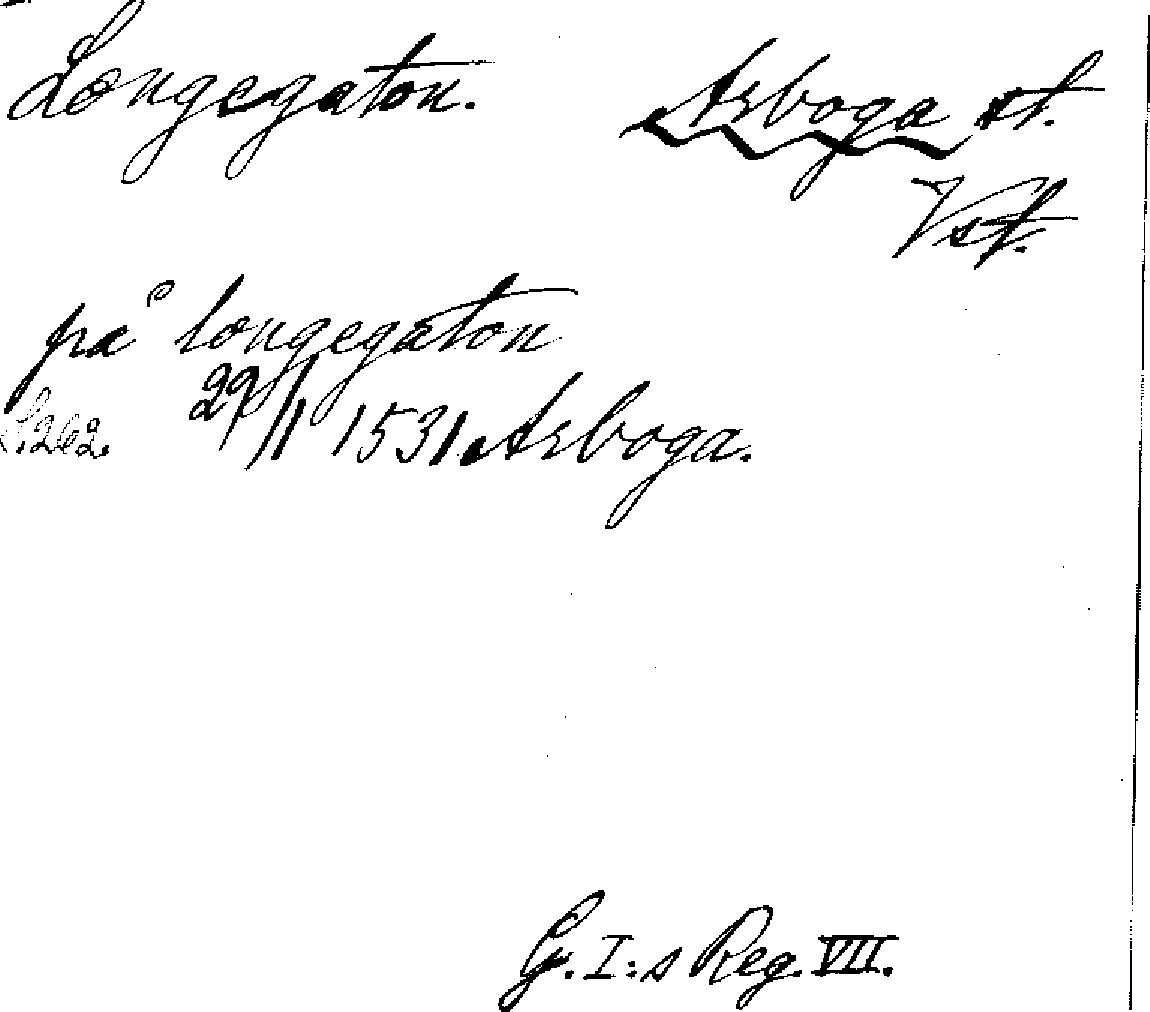 Longegaton. Arboga st.
Vst.
på longegaton
S. 262. 29/11 1531 Arboga.
G. I:s Reg. VII.